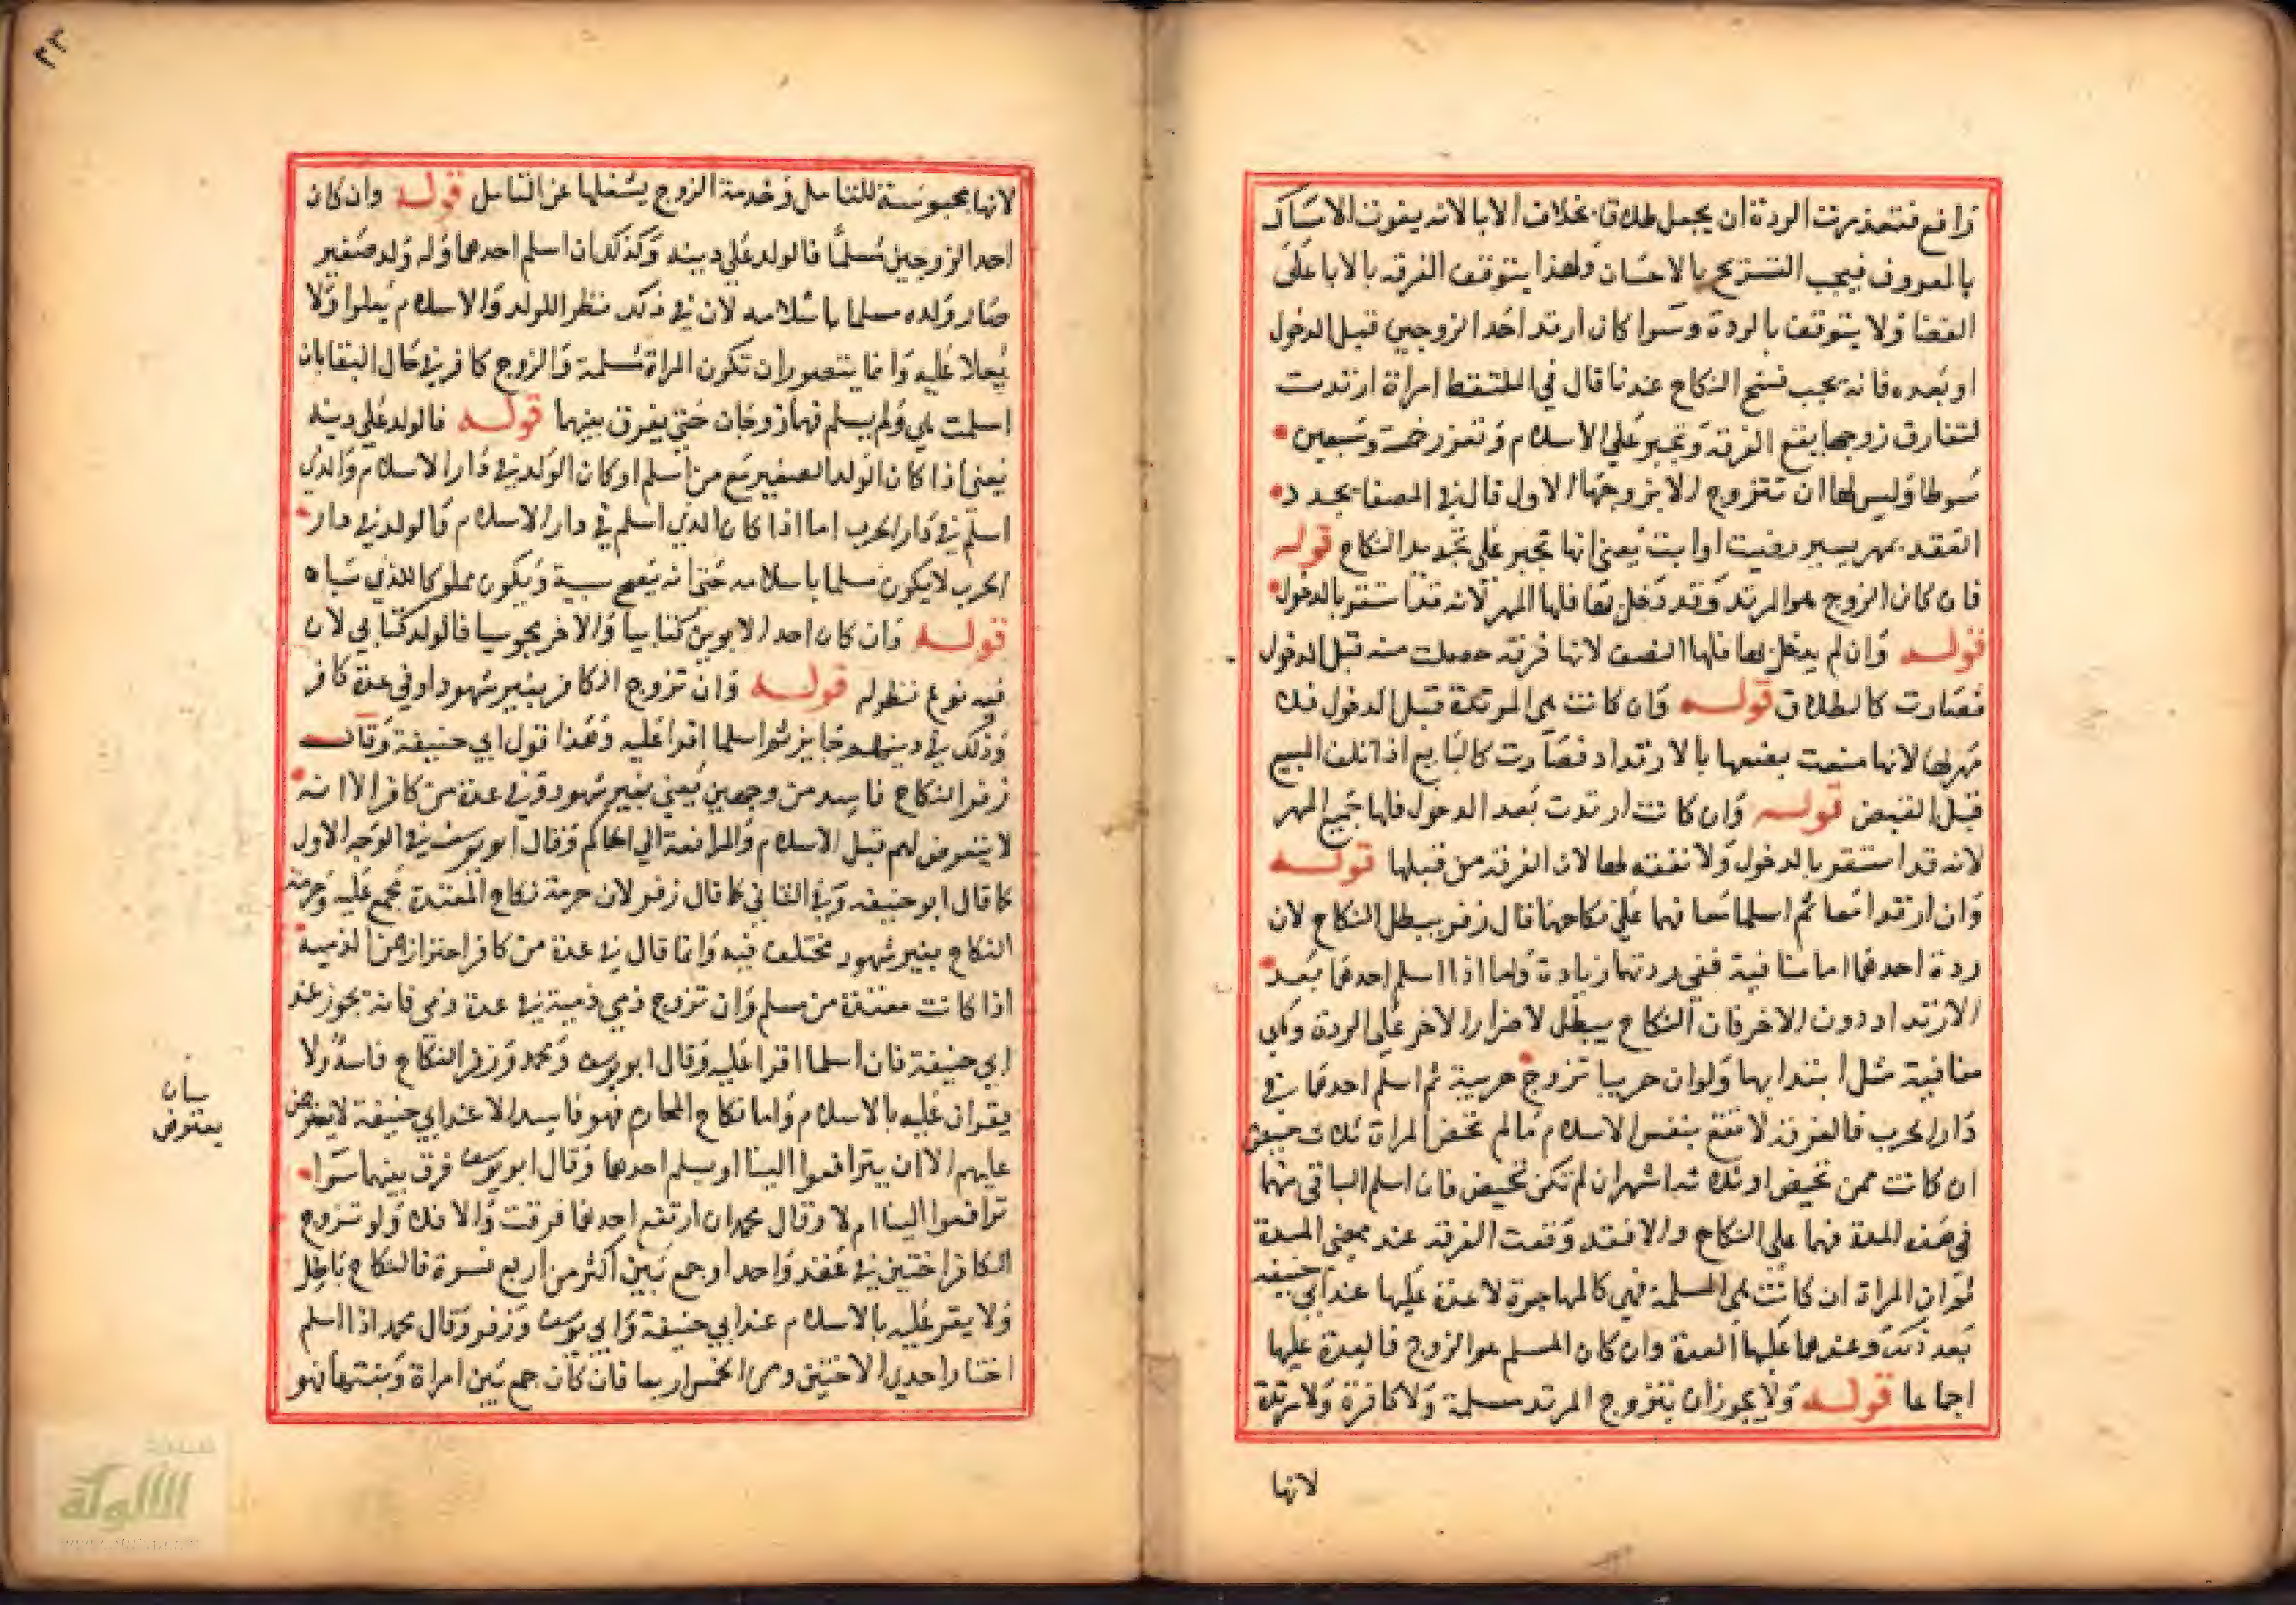 رافع فتعذرت الردة ان يجعل طلاقا بخلاف الابا لانه يفوت الامساك
بالمعروف فيجب التسريح بالاحسان ولهذا يتوقف الفرقه بالابا على
القضا ولا يتوقف بالردة وسوا كان ارتد احد الزوجين قبل الدخول
او بعده فانه يجب فسخ النكاح عندنا قال في الملتقط امراة ارتدت
لتفارق زوجها يقع الفرقه وتجبر على الاسلام وتعزر خمسة وسبعين
سوطا وليس لها ان تتزوج الا بزوجها الاول قال في المصفا يجدد
العقد بمهر يسير رضيت او ابت يعني انها تجبر على تجديد النكاح قوله
فان كان الزوج هو المرتد وقد دخل بها فلها المهر لانه قد استقر بالدخول
قوله وان لم يدخل بها فلها النصف لانها فرقه حصلت منه قبل الدخول
فصارت كالطلاق قوله وان كانت هي المرتدة قبل الدخول فلا
مهر لها لانها منعت بضعها بالارتداد فصارت كالبايع اذا تلف المبيع
قبل القبض قوله وان كانت ارتدت بعد الدخول فلها جميع المهر
لانه قد استقر بالدخول ولا نفقه لها لان الفرقه من قبلها قوله
وان ارتدا معا ثم اسلما معا فهما على نكاحهما قال زفر يبطل النكاح لان
ردة احدهما منافية ففي ردتهما زيادة واما اذا اسلم احدهما بعد
الارتداد دون الاخر فان النكاح يبطل لاصرار الاخر على الردة وهي
منافية مثل ابتدايها ولو ان حربيا تزوج حربية ثم اسلم احدهما في
دار الحرب فالفرقه لا تقع بنفس الاسلام مالم تحض المراة ثلاث حيض
ان كانت ممن تحيض او ثلاثه اشهر ان لم تكن تحيض فان اسلم الباقي منهما
في هذه المدة فهما على النكاح والا فقد وقعت الفرقه عند مضي المدة
ثم ان المراة ان كانت هي المسلمة فهي كالمهاجرة لا عدة عليها عند ابي حنيفه
بعد ذلك وعندهما عليها العدة وان كان المسلم هو الزوج فالعدة عليها
اجماعا قوله ولا يجوز ان يتزوج المرتد مسلمة ولا كافرة ولا مرتدة
لانها
٢٣
لانها محبوسة للتامل وخدمة الزوج يشغلها عن التامل قوله وان كان
احد الزوجين مسلما فالولد على دينه وكذلك ان اسلم احدهما وله ولد صغير
صار ولده مسلما باسلامه لان في ذلك نظرا للولد والاسلام يعلوا ولا
يعلا عليه وانما يتصور ان تكون المراة مسلمة والزوج كافر في حال البقا بان
اسلمت هي ولم يسلم فهما زوجان حتي يفرق بينهما قوله فالولد على دينه
يعني اذا كان الولد الصغير مع من اسلم او كان الولد في دار الاسلام والذي
اسلم في دار الحرب اما اذا كان الذي اسلم في دار الاسلام فالولد في دار
الحرب لا يكون مسلما باسلامه حتي انه يصح سبيه ويكون مملوكا للذي سباه
قوله وان كان احد الابوين كتابيا والاخر مجوسيا فالولد كتابي لان
فيه نوع نظر له قوله وان تزوج الكافر بغير شهود او في عدة كافر
وذلك في دينهم جايز ثم اسلما اقرا عليه وهذا قول ابي حنيفة وقال
زفر النكاح فاسد من وجهين يعني بغير شهود وفي عدة من كافر الا انه
لا يتعرض لهم قبل الاسلام والمرافعة الي الحاكم وقال ابو يوسف في الوجه الاول
كما قال ابو حنيفه وفي الثاني كما قال زفر لان حرمة نكاح المعتدة مجمع عليه وحرمة
النكاح بغير شهود مختلف فيه وانما قال في عدة من كافر احترازا عن الذمية
اذا كانت معتدة من مسلم وان تزوج ذمي ذمية في عدة ذمي فانه يجوز عند
ابي حنيفة فان اسلما اقرا عليه وقال ابو يوسف ومحمد وزفر النكاح فاسد ولا
يقران عليه بالاسلام واما نكاح المحارم فهو فاسد الا عند ابي حنيفة لا يعترض
عليهم الا ان يترافعوا الينا او يسلم احدهما وقال ابو يوسف فرق بينهما سوا
ترافعوا الينا ام لا وقال محمد ان ارتفع احدهما فرقت والا فلا ولو تزوج
الكافر اختين في عقد واحد او جمع بين اكثر من اربع نسوة فالنكاح باطل
ولا يقر عليه بالاسلام عند ابي حنيفة وابي يوسف وزفر وقال محمد اذا اسلم
اختار احدي الاختين ومن الخمس اربعا فان كان جمع بين امراة وبنتها فهو
بيان
يعترض
الألوكة
www.alukah.net